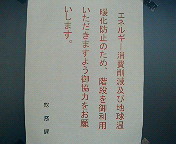 エネルギー消費削減及び地球温
暖化防止のため、階段を御利用
いただきますよう御協力をお願
いします。
総務課